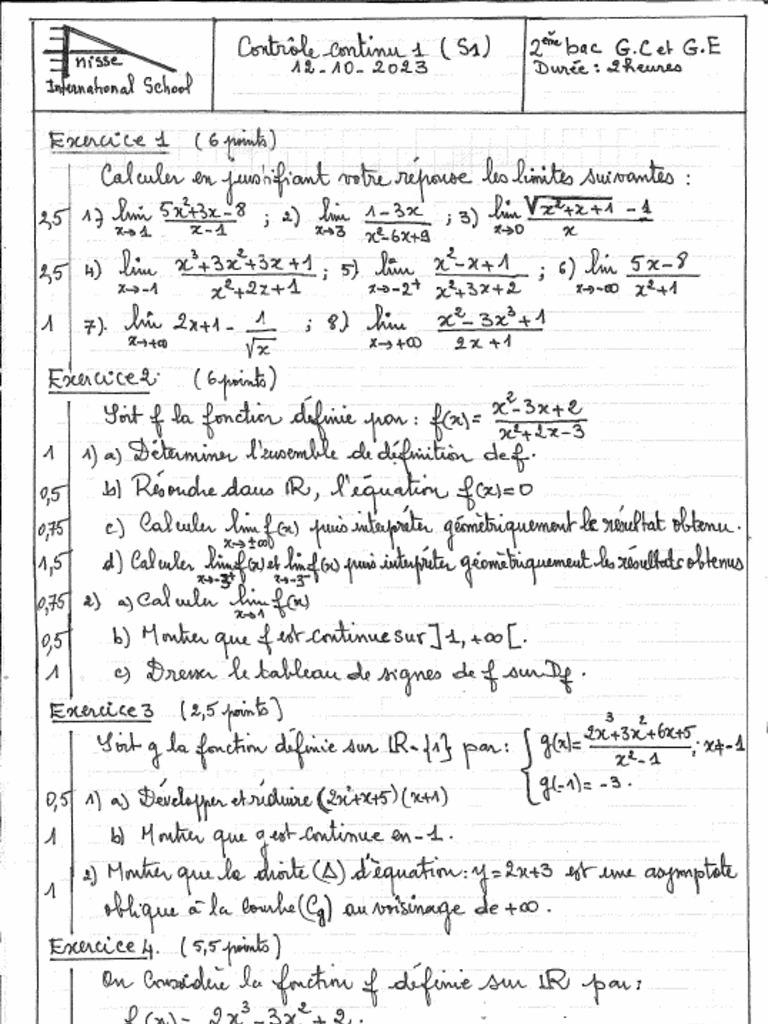 nisse
International School
Contrôle continu 1 (S1)
12-10-2023
2ème bac G.C et G.E
Durée : 2 heures
Exercice 1 (6 points)
Calculer en justifiant votre réponse les limites suivantes :
2,5 1) lim x→1 (5x²+3x-8)/(x-1) ; 2) lim x→3 (1-3x)/(x²-6x+9) ; 3) lim x→0 (√(x²+x+1) -1)/x
2,5 4) lim x→-1 (x³+3x²+3x+1)/(x²+2x+1) ; 5) lim x→-2⁺ (x²-x+1)/(x²+3x+2) ; 6) lim x→-∞ (5x-8)/(x²+1)
1 7). lim x→+∞ 2x+1 - 1/√x ; 8) lim x→+∞ (x²-3x³+1)/(2x+1)
Exercice 2 (6 points)
Soit f la fonction définie par : f(x)= (x²-3x+2)/(x²+2x-3)
1 1) a) Déterminer l'ensemble de définition de f.
0,5 b) Résoudre dans IR, l'équation f(x)=0
0,75 c) Calculer lim x→±∞ f(x) puis interpréter géométriquement le résultat obtenu.
1,5 d) Calculer lim x→-3⁺ f(x) et lim x→-3⁻ f(x) puis interpréter géométriquement les résultats obtenus
0,75 2) a) Calculer lim x→1 f(x)
0,5 b) Montrer que f est continue sur ]1,+∞[.
1 c) Dresser le tableau de signes de f sur Df.
Exercice 3 (2,5 points)
Soit g la fonction définie sur IR-{1} par : { g(x)= (2x³+3x²+6x+5)/(x²-1) ; x≠-1
g(-1)= -3.
0,5 1) a) Développer et réduire (2x²+x+5)(x+1)
1 b) Montrer que g est continue en -1.
1 2) Montrer que la droite (Δ) d'équation : y=2x+3 est une asymptote
oblique à la courbe (Cg) au voisinage de +∞.
Exercice 4. (5,5 points)
On considère la fonction f définie sur IR par :
f(x)= 2x³-3x²+2.